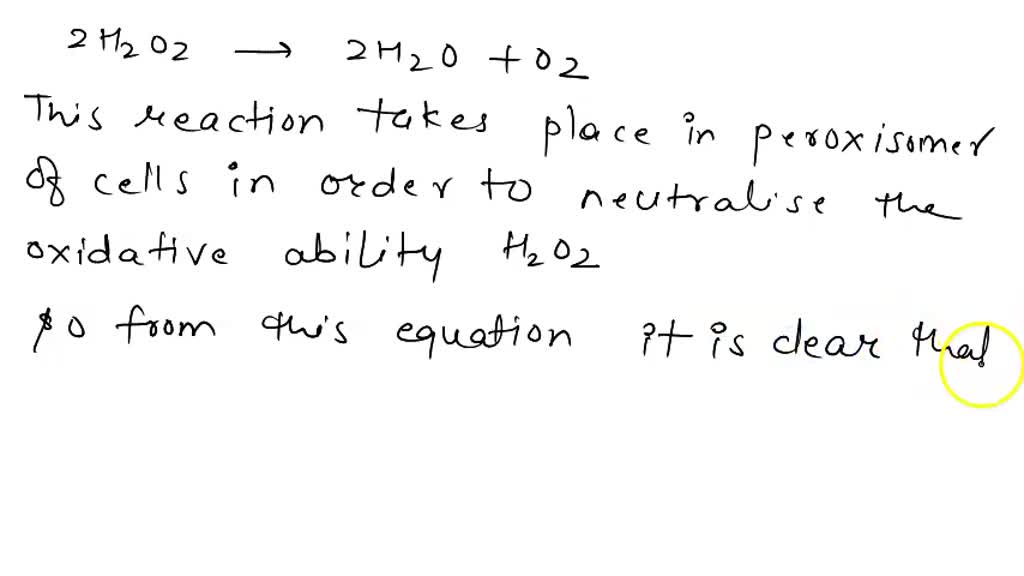 2H₂O₂ → 2H₂O + O₂
This reaction takes place in peroxisomer
of cells in order to neutralise the
oxidative ability H₂O₂
so from this equation it is clear that